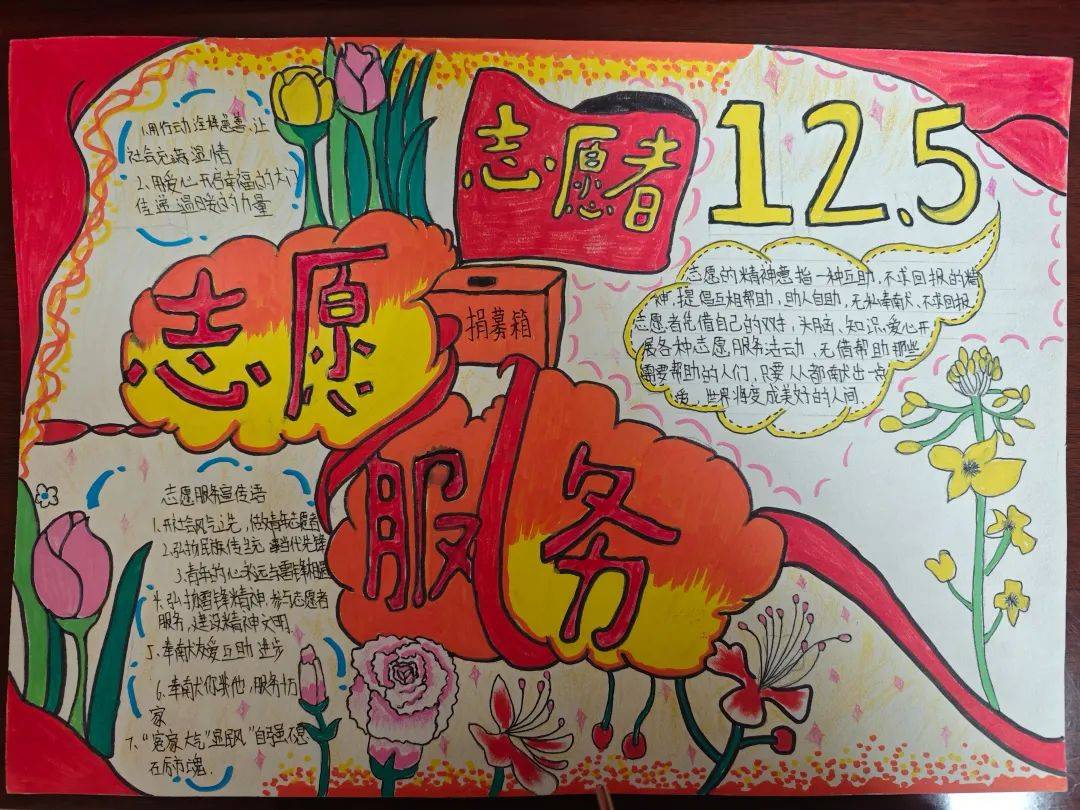 志愿者
12.5
1.用行动诠释慈善,让
社会充满温情
2、用爱心开启幸福的大门
传递温暖的力量
志愿
服务
捐募箱
志愿的精神意指一种互助、不求回报的精
神,提倡互相帮助,助人自助,无私奉献、不求回报。
志愿者凭借自己的双手,头脑、知识、爱心开
展各种志愿服务活动、无偿帮助那些
需要帮助的人们,只要人人都献出一点
爱,世界将变成美好的人间.
志愿服务宣传语
1.开社会风气之先,做青年志愿者
2.弘扬民族传统 当代先锋
3.青年的心永远与雷锋相
4.弘扬雷锋精神.参与志愿者
服务,建设精神文明.
5、奉献友爱互助进步
6、奉献你我他,服务万
家
7、“客家大气”显 风“自强不息
在 市魂.